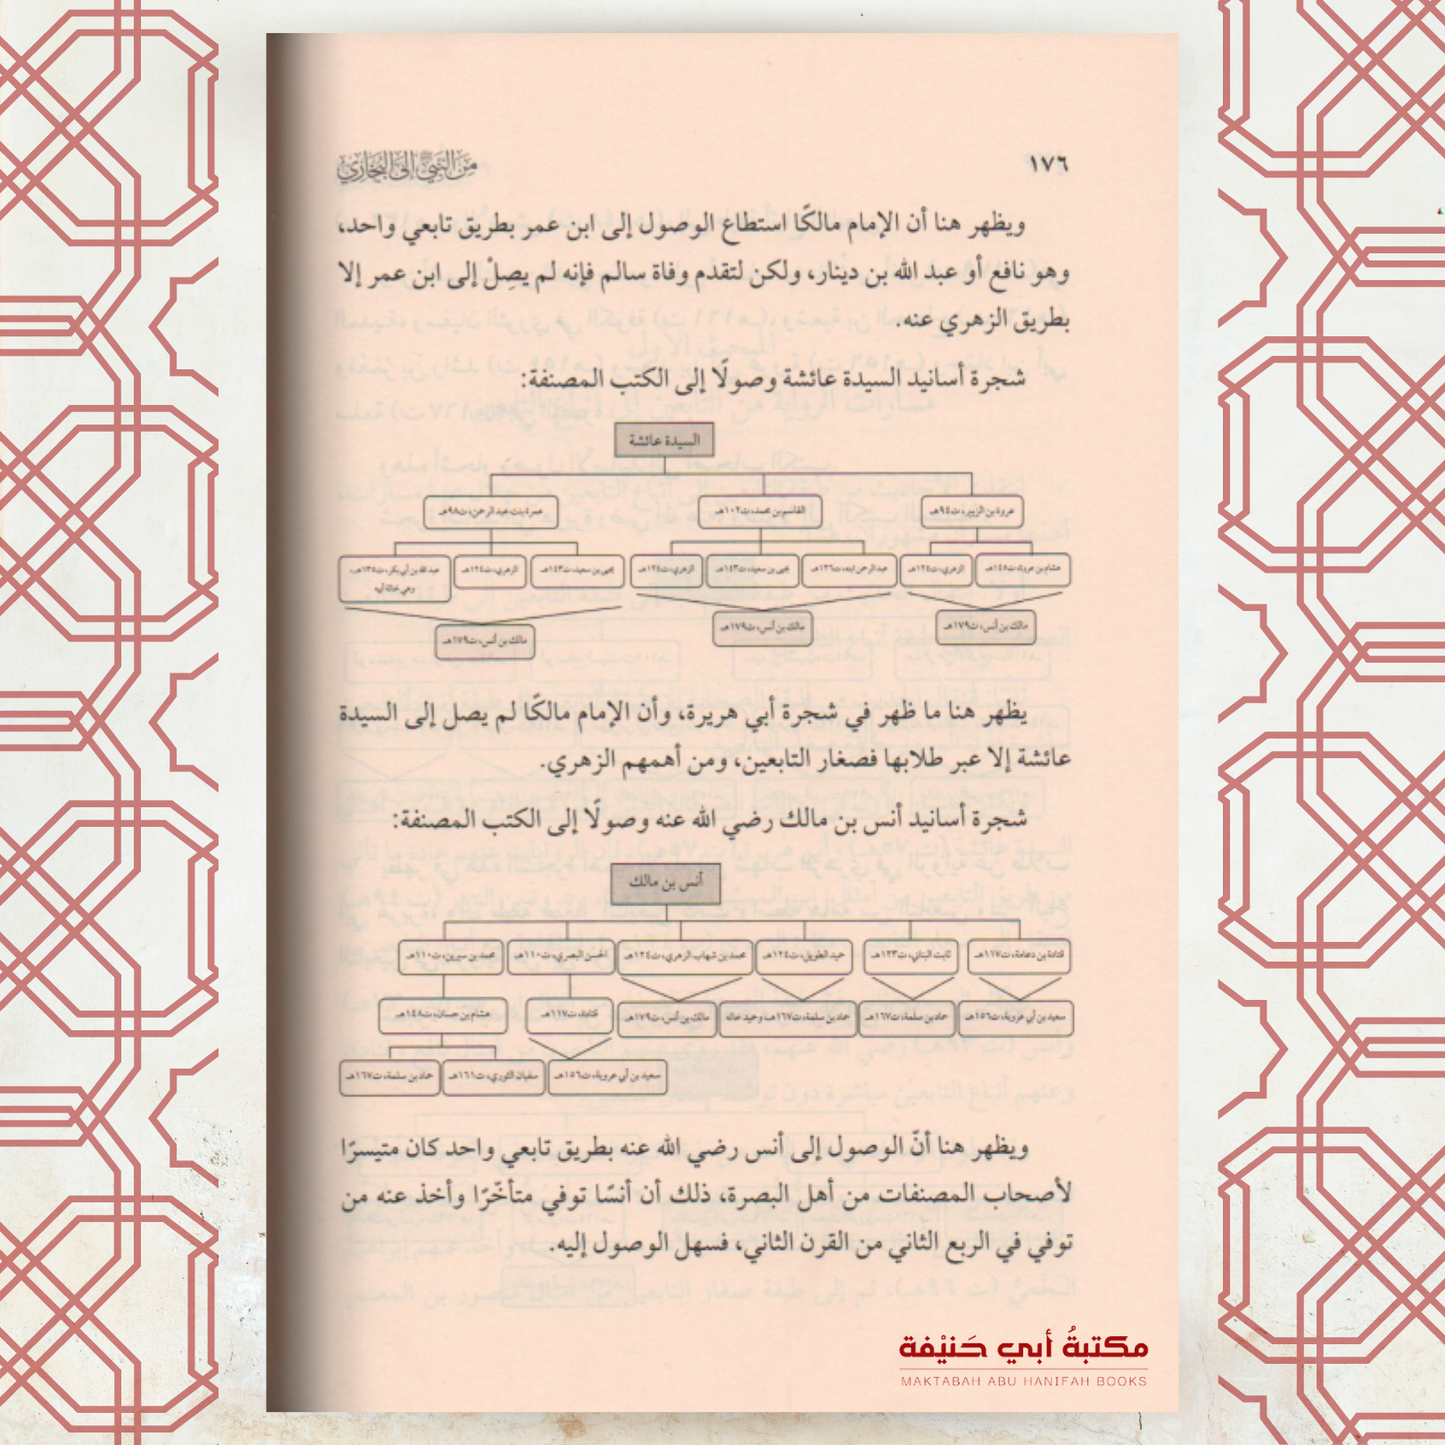 ١٧٦
من النبي ﷺ إلى البخاري
ويظهر هنا أن الإمام مالكًا استطاع الوصول إلى ابن عمر بطريق تابعي واحد،
وهو نافع أو عبد الله بن دينار، ولكن لتقدم وفاة سالم فإنه لم يصِلْ إلى ابن عمر إلا
بطريق الزهري عنه.
شجرة أسانيد السيدة عائشة وصولًا إلى الكتب المصنفة:
السيدة عائشة
عروة بن الزبير، ت٩٤هـ
القاسم بن محمد، ت١٠٢هـ
عمرة بنت عبد الرحمن، ت٩٨هـ
هشام بن عروة، ت١٤٥هـ
الزهري، ت١٢٤هـ
عبد الرحمن ابنه، ت١٢٦هـ
يحيى بن سعيد، ت١٤٣هـ
الزهري، ت١٢٤هـ
يحيى بن سعيد، ت١٤٣هـ
الزهري، ت١٢٤هـ
عبد الله بن أبي بكر، ت١٣٥هـ،
وهي خالة أبيه
مالك بن أنس، ت١٧٩هـ
مالك بن أنس، ت١٧٩هـ
مالك بن أنس، ت١٧٩هـ
يظهر هنا ما ظهر في شجرة أبي هريرة، وأن الإمام مالكًا لم يصل إلى السيدة
عائشة إلا عبر طلابها فصغار التابعين، ومن أهمهم الزهري.
شجرة أسانيد أنس بن مالك رضي الله عنه وصولًا إلى الكتب المصنفة:
أنس بن مالك
قتادة بن دعامة، ت١١٧هـ
ثابت البناني، ت١٢٣هـ
حميد الطويل، ت١٤٢هـ
محمد بن شهاب الزهري، ت١٢٤هـ
الحسن البصري، ت١١٠هـ
محمد بن سيرين، ت١١٠هـ
سعيد بن أبي عروبة، ت١٥٦هـ
حماد بن سلمة، ت١٦٧هـ
حماد بن سلمة، ت١٦٧هـ، وحميد خاله
مالك بن أنس، ت١٧٩هـ
قتادة، ت١١٧هـ
هشام بن حسان، ت١٤٨هـ
سعيد بن أبي عروبة، ت١٥٦هـ
سفيان الثوري، ت١٦١هـ
حماد بن سلمة، ت١٦٧هـ
ويظهر هنا أنّ الوصول إلى أنس رضي الله عنه بطريق تابعي واحد كان متيسرًا
لأصحاب المصنفات من أهل البصرة، ذلك أن أنسًا توفي متأخّرًا وأخذ عنه من
توفي في الربع الثاني من القرن الثاني، فسهل الوصول إليه.
مكتبةُ أبي حَنيْفة
MAKTABAH ABU HANIFAH BOOKS